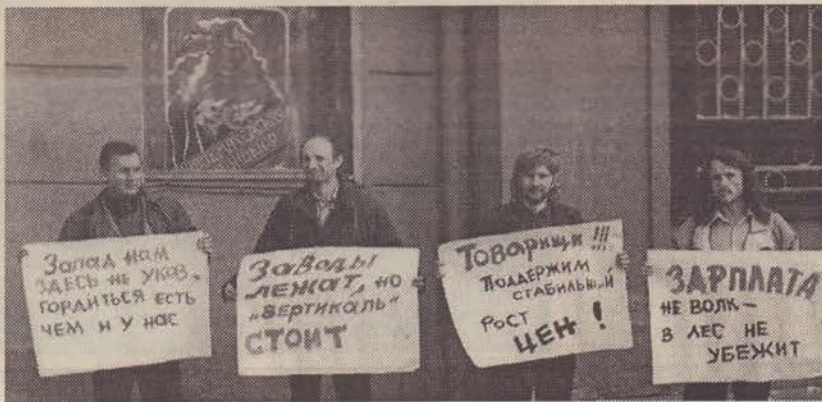 Запад нам
здесь не указ.
Гордиться есть
чем и у нас
Заводы
лежат, но
„вертикаль“
стоит
Товарищи!!!
Поддержим
стабильный
рост
цен!
ЗАРПЛАТА
НЕ ВОЛК —
В ЛЕС НЕ
УБЕЖИТ